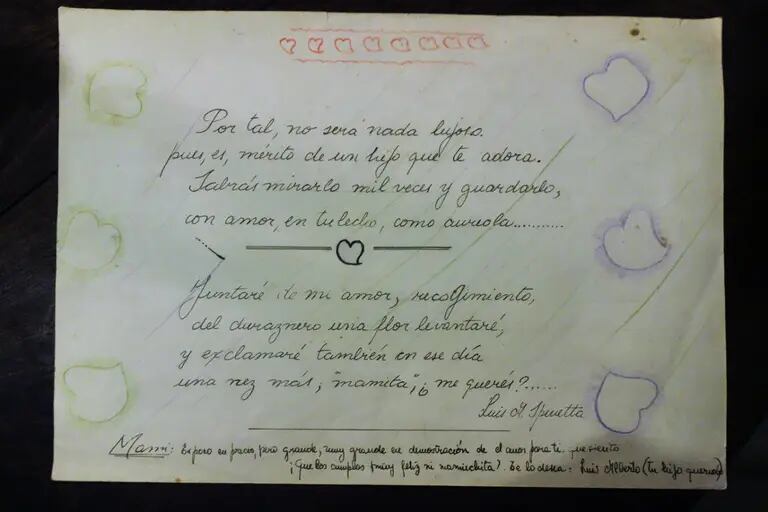 Por tal, no será nada lujoso.
pues, es, mérito de un hijo que te adora.
Sabrás mirarlo mil veces y guardarlo,
con amor, en tu lecho, como aureola...........
Juntaré de mi amor, recogimiento,
del duraznero una flor levantaré,
y exclamaré también en ese día
una vez más, "mamita", ¿me querés?......
Luis A. Spinetta
Mami: Es poco en precio, pero grande, muy grande en demostración de el amor para ti. que siento
¡Que los cumplas muy feliz mi mamuchita! Te lo desea: Luis Alberto (Tu hijo querido)